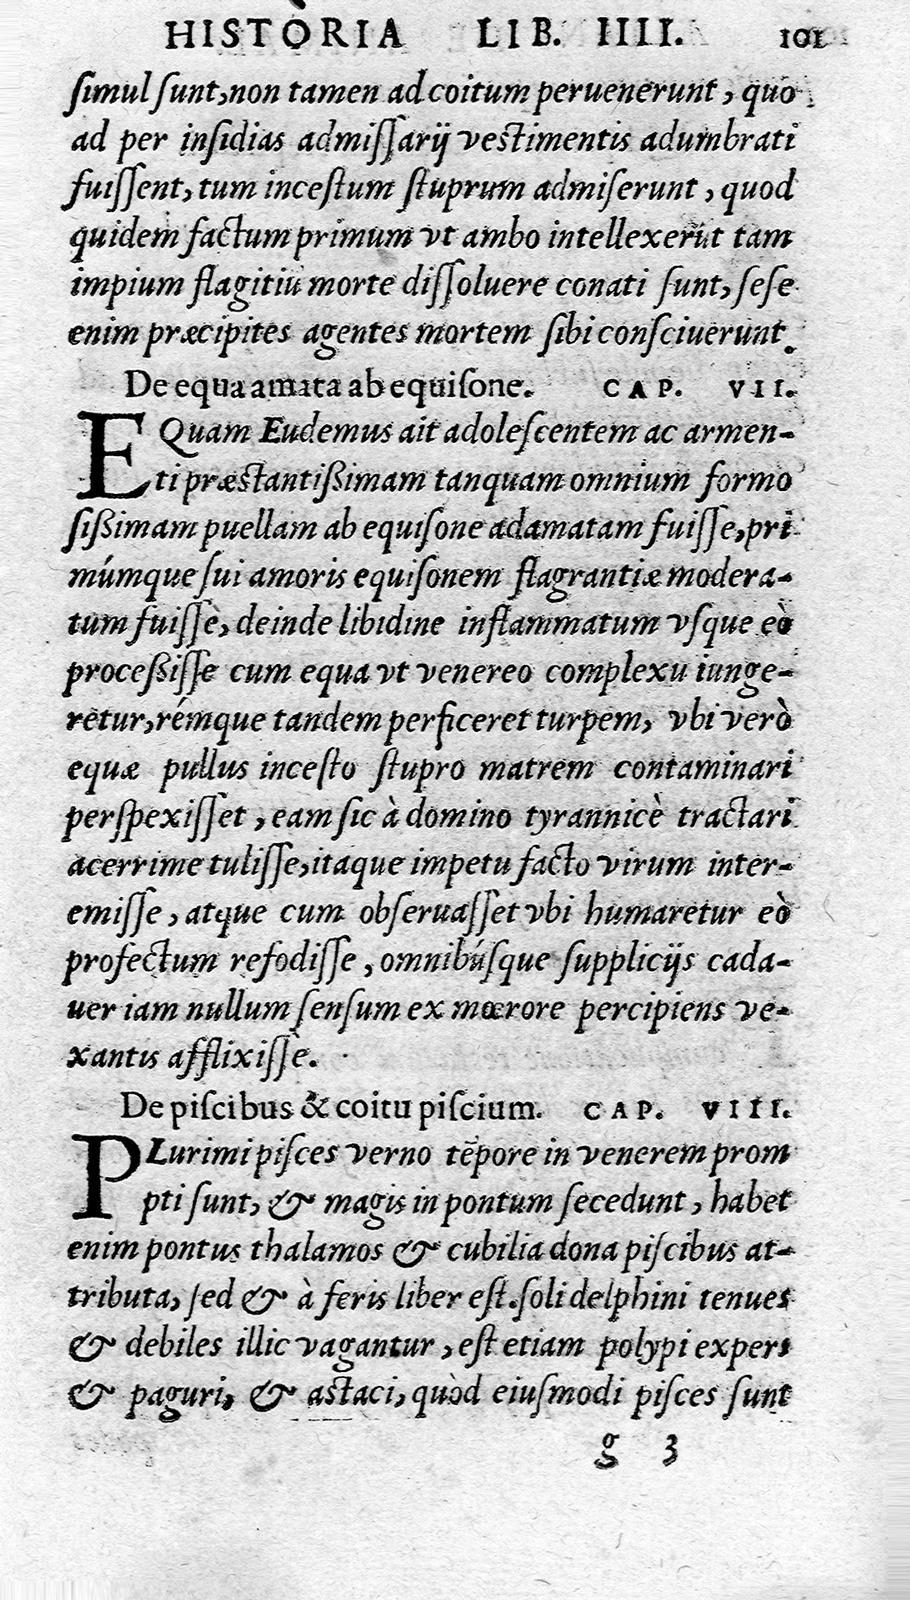 HISTORIA LIB. IIII. 101
simul sunt, non tamen ad coitum peruenerunt, quo
ad per insidias admissarij vestimentis adumbrati
fuissent, tum incestum stuprum admiserunt, quod
quidem factum primum vt ambo intellexerūt tam
impium flagitiū morte dissoluere conati sunt, sese
enim præcipites agentes mortem sibi consciuerunt.
De equa amata ab equisone. CAP. VII.
EQuam Eudemus ait adolescentem ac armen-
ti præstantißimam tanquam omnium formo
sißimam puellam ab equisone adamatam fuisse, pri
múmque sui amoris equisonem flagrantiæ modera-
tum fuisse, deinde libidine inflammatum vsque eò
proceßisse cum equa vt venereo complexu iunge-
retur, rémque tandem perficeret turpem, vbi verò
equæ pullus incesto stupro matrem contaminari
perspexisset, eam sic à domino tyrannicè tractari
acerrime tulisse, itaque impetu facto virum inter-
emisse, atque cum obseruasset vbi humaretur eò
profectum refodisse, omnibúsque supplicijs cada-
uer iam nullum sensum ex mœrore percipiens ve-
xantis afflixisse.
De piscibus & coitu piscium. CAP. VIII.
PLurimi pisces verno tēpore in venerem prom
pti sunt, & magis in pontum secedunt, habet
enim pontus thalamos & cubilia dona piscibus at-
tributa, sed & à feris liber est. soli delphini tenues
& debiles illic vagantur, est etiam polypi expers
& paguri, & astaci, quòd eiusmodi pisces sunt
g 3